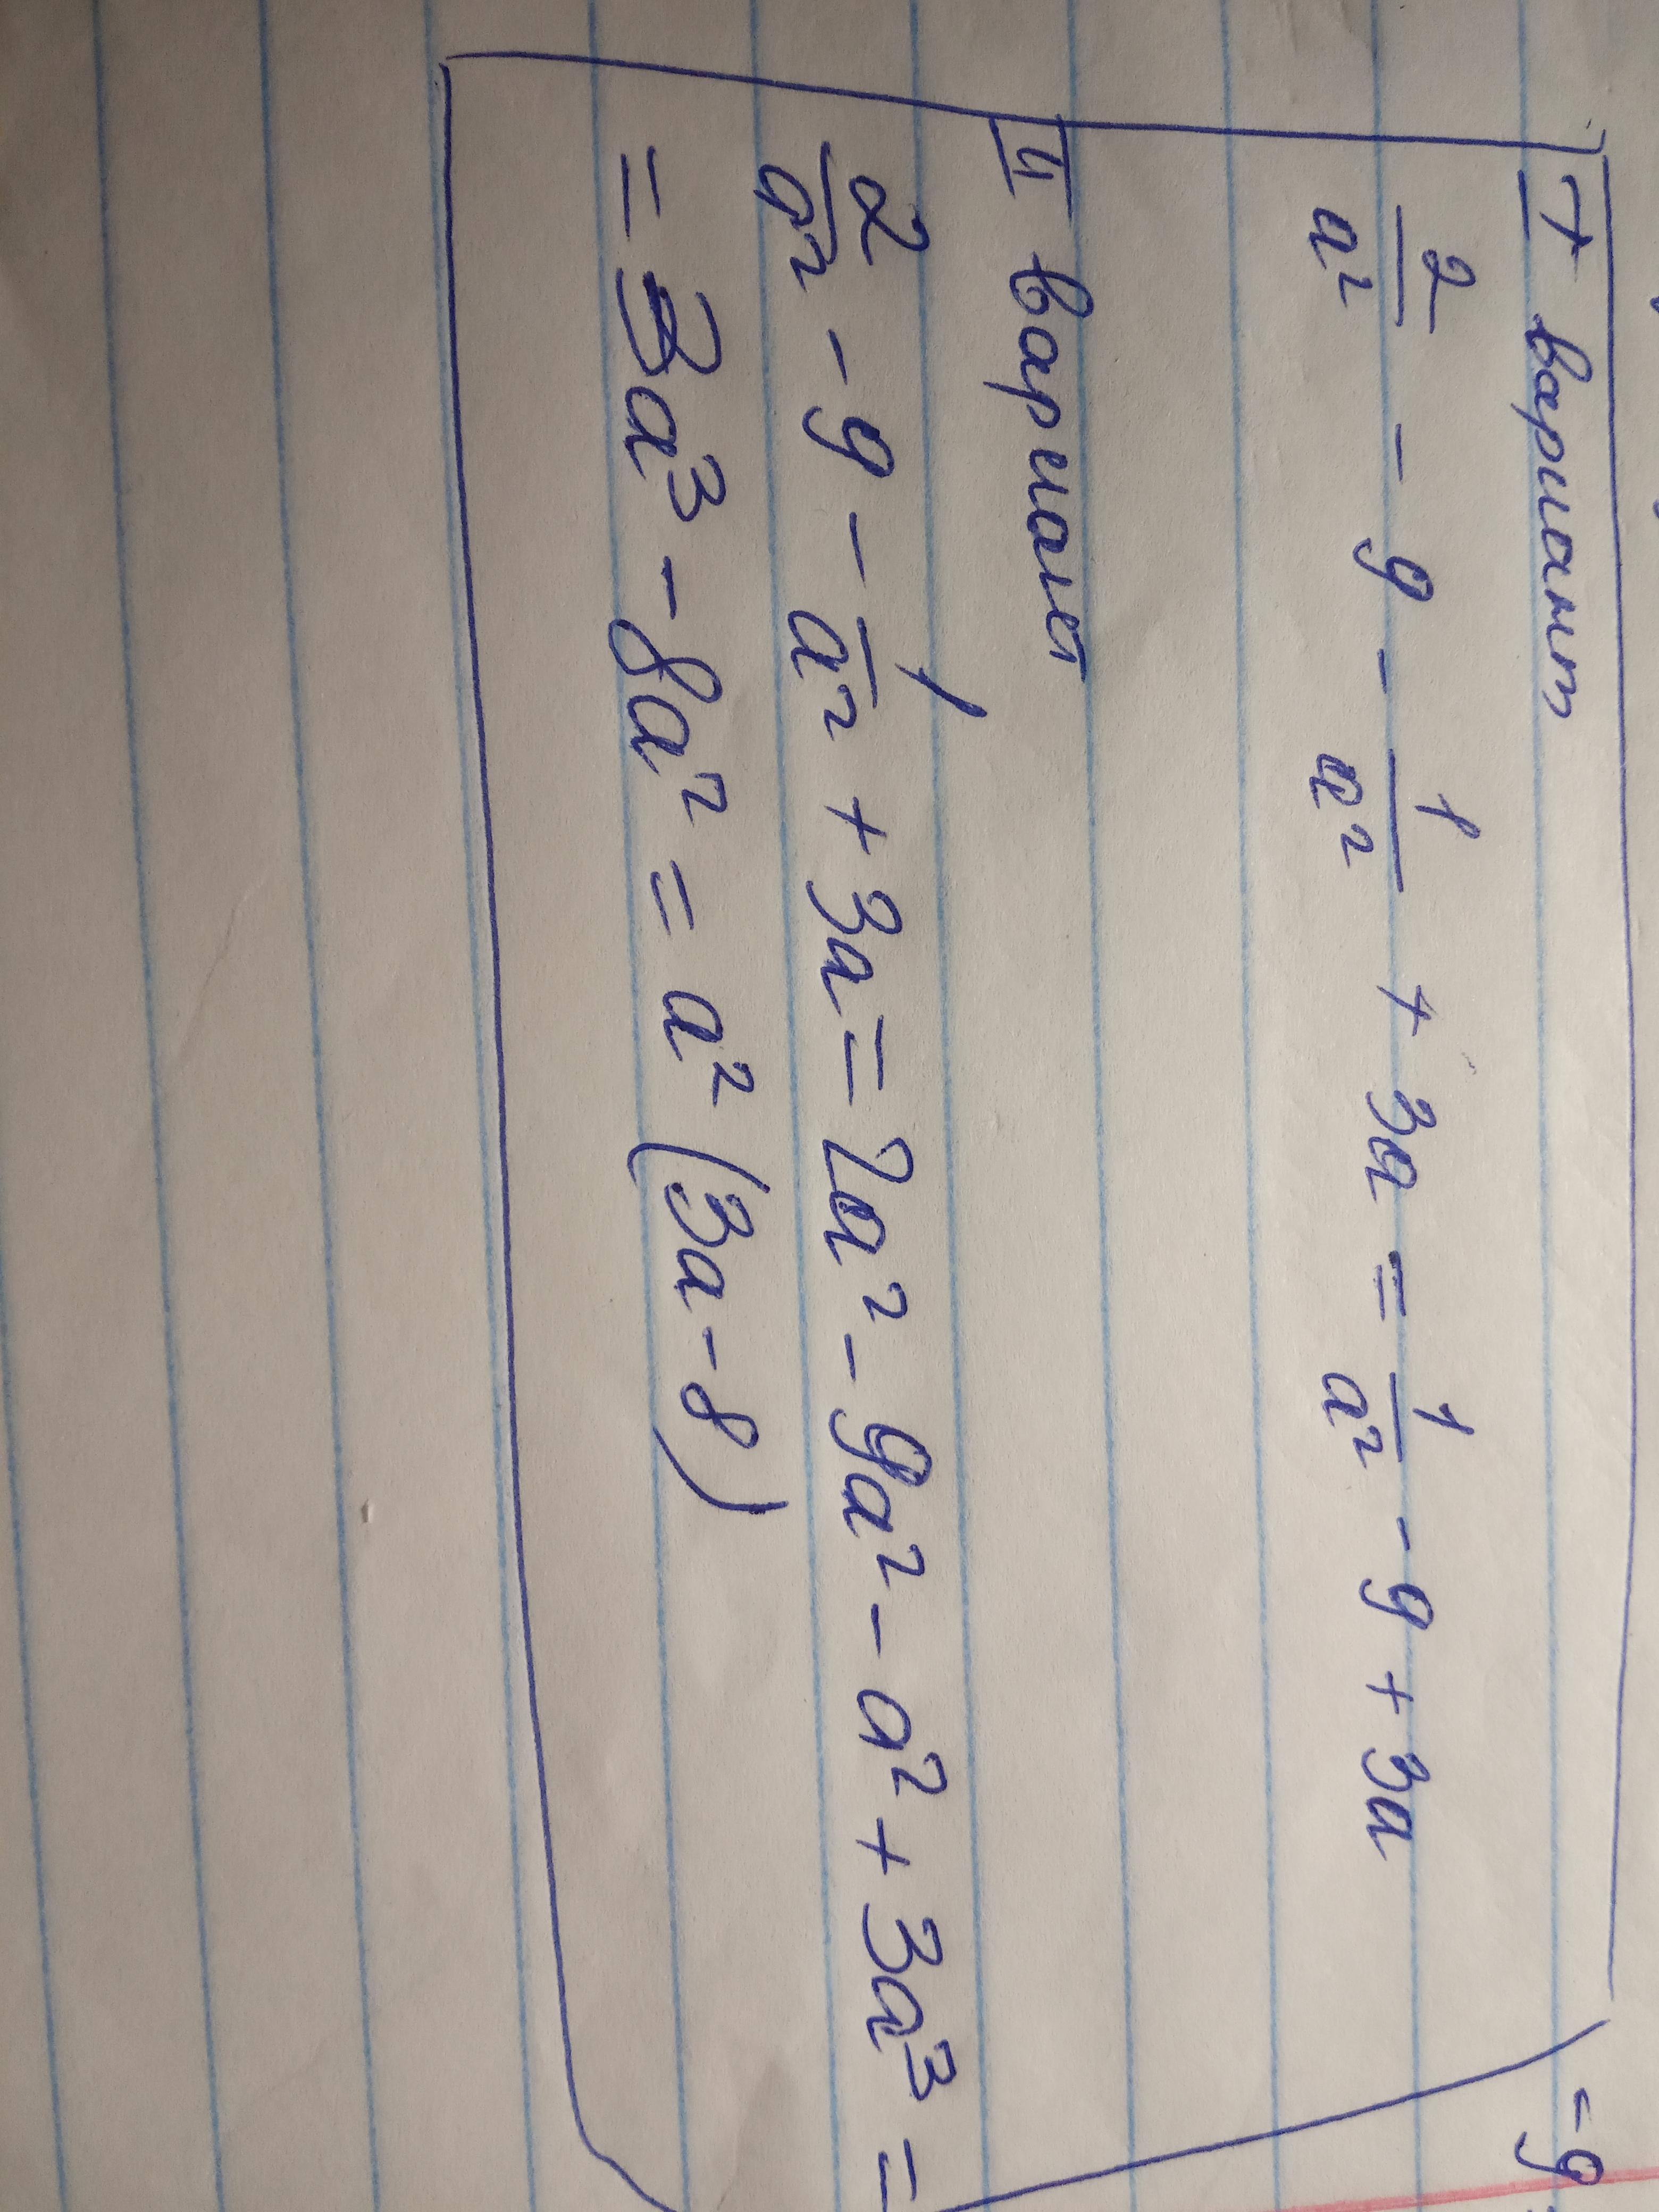 I вариант
2/a² - 9 - 1/a² + 3a = 1/a² - 9 + 3a
II вариант
2/a² - 9 - 1/a² + 3a = 2a² - 9a² - a² + 3a³ =
= 3a³ - 8a² = a² (3a - 8)
- 9